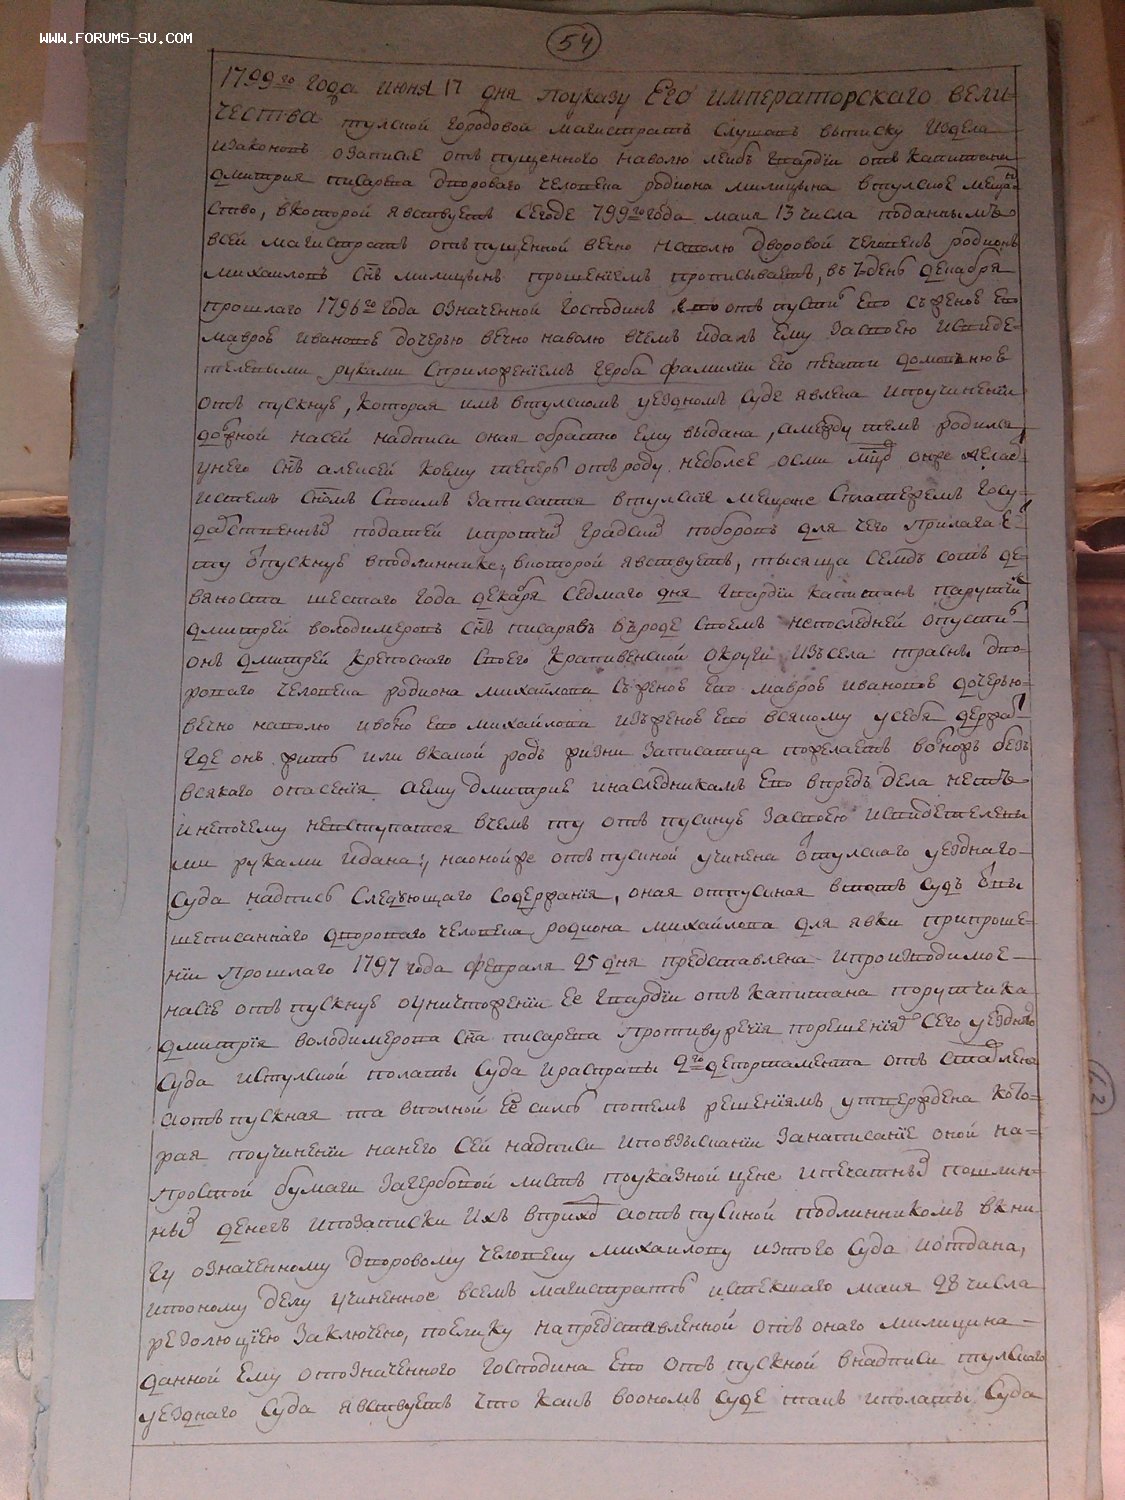 WWW.FORUMS-SU.COM
54
1799го года июня 17 дня поуказу Его императорскаго вели-
чества тулской городовой магистратъ слушалъ выписку издела
изаконовъ озаписке отъ пущенного наволю лейбъ гвардии отъ капитана
дмитрия писарева двороваго человека родиона милицына втулское мещан
ство, вкоторой явствуетъ сегоде 799го года маия 13 числа поданнымъ
всей магистратъ отъ пущенной вечно наволю дворовой человекъ родионъ
михайловъ снъ милицынъ прошениемъ прописываетъ, въ 7 день декабря
прошлаго 1796го года означенной господинъ отъ пустил ево съженою ево
маврою ивановою дочерью вечно наволю вчемъ идалъ ему засвоею исвиде-
телными руками сприложениемъ герба фамилии его печати
отъ пускную, которая имъ втулскомъ уездномъ суде явлена ипоучинении
должной насей надписи оная обратно ему выдана, амежду темъ родился
унего снъ алексей коему теперь отъ роду неболее осми онже желает
истемъ сномъ своимъ записатся втулские мещане сплатежемъ госу-
дарственных податей ипротчих градских поборовъ для чего прилагае
ту отпускную вподлиннике, вкоторой явствуетъ, тысяща семдъ сотъ де-
вяноста шестаго года декабря седмаго дня гвардии капитанъ парутчик
дмитрей володимеровъ снъ писаревъ въроде своемъ непоследней отпустил
онъ дмитрей крепоснаго своего крапивенской округи изъсела дво-
роваго человека родиона михайлова съженою ево маврою ивановою дочерью
вечно наволю иволно ево михайлова изъженою ево всякому усебя держать
где онъ жить или вкакой родъ жизни записатца пожелаетъ волной безъ
всякаго опасения аему дмитрию инаследникамъ ево впредь дела нетъ
инепочему невступатся вчемъ ту отъ пускную засвоею исвидетелены
ми руками идана, наонойже отъ пускной учинена отъ тулскаго уезднаго
суда надпись следующаго содержания, оная отпускная втотъ судъ отвы
шеписаннаго двороваго человека родиона михайлова для явки припроше-
нии прошлаго 1797 года февраля 25 дня представлена ипроизводимое
насие отъ пускную оуничтожении ее гвардии отъ капитана поручика
дмитрия володимерова сна писарева противуречия порешениям сего уезднаго
суда итулской полаты суда ирасправы 2го депортамента отъ ставлена
аотъ пускная та вполной ее силе потемъ решениямъ утверждена кото-
рая поучинении нанего сей надписи иповзыскании занаписание оной на-
простой бумаги загербовой листъ поуказной цене ипечатных пошлин-
ных денегъ ипозаписки ихъ вприход аотъ пускной подлинникомъ вкни
гу означенному дворовому человеку михаилову изтого суда иотдана,
ипооному делу учиненное всемъ магистрате истекшаго маия 28 числа
резолюциею заключено, поелику напредставленной отъ онаго милицина
данной ему отозначенного господина ево отъ пускной внадписи тулскаго
уезднаго суда явствуетъ что какъ воономъ суде такъ иполаты суда